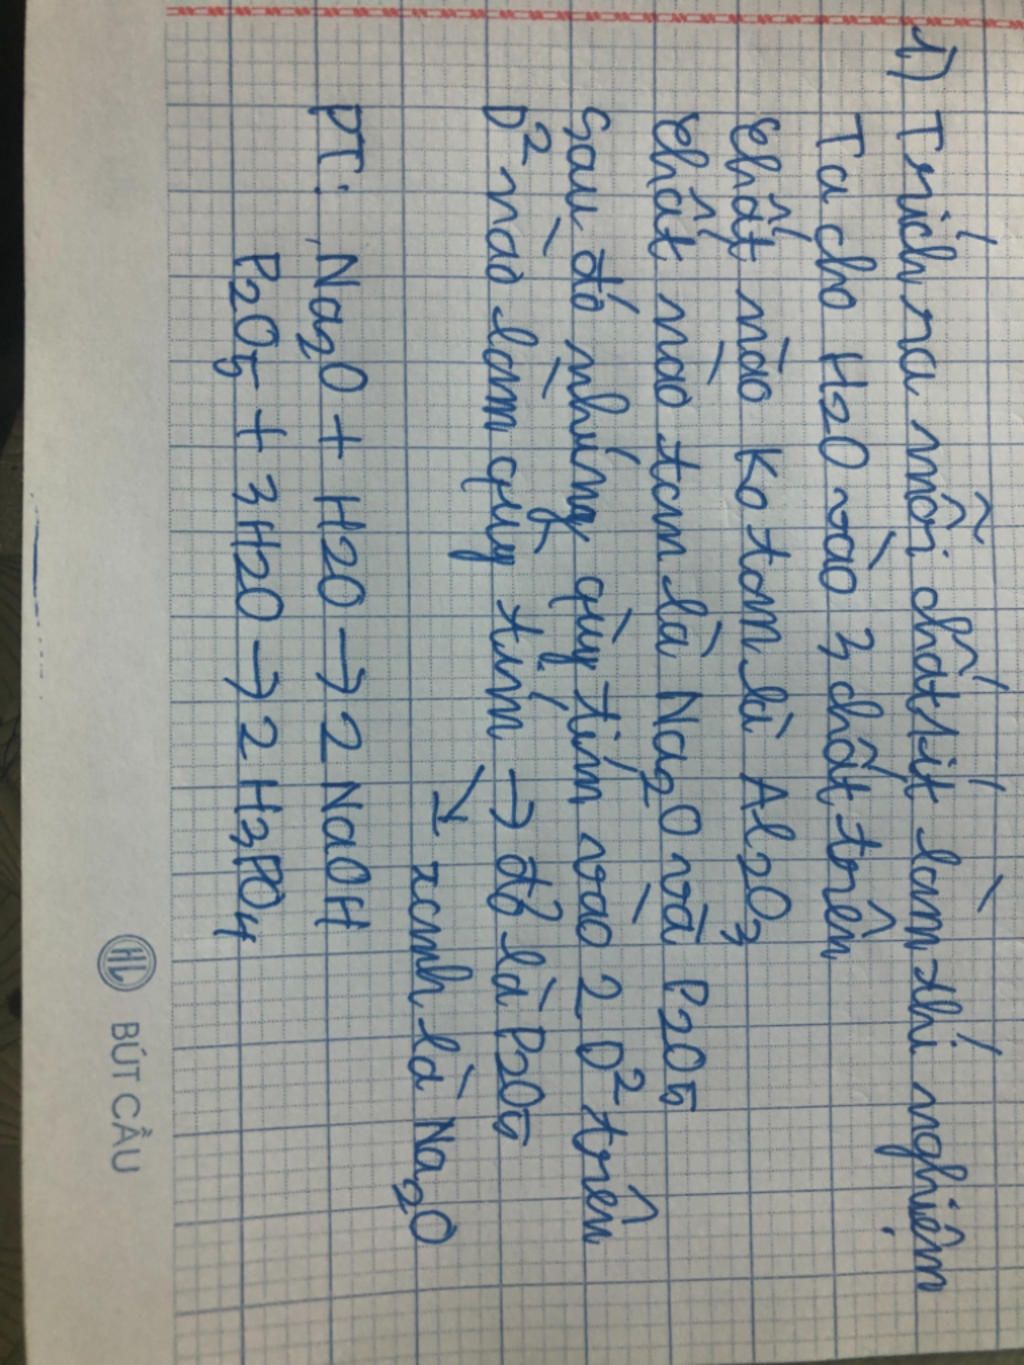 1) Trích ra mỗi chất 1 ít làm thí nghiệm
Ta cho H2O vào 3 chất trên
Chất nào Ko tan là Al2O3
Chất nào tan là Na2O và P2O5
Sau đó nhúng quỳ tím vào 2 D² trên
D² nào làm quỳ tím → đỏ là P2O5
↘ xanh là Na2O
PT: Na2O + H2O → 2 NaOH
P2O5 + 3H2O → 2 H3PO4
HL BÚT CẦU